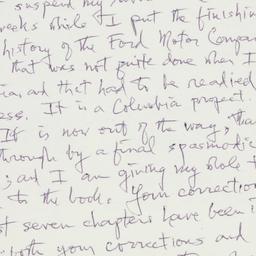 suspend my
weeks while I put the finishin
history of the Ford Motor Compan
that was not quite done when I
and that had to be readied
ess. It is a Columbia project.
It is now out of the way, tha
through by a final spasmodic
; and I am giving my whole t
to the book. Your correction
t seven chapters have been i
both your corrections and